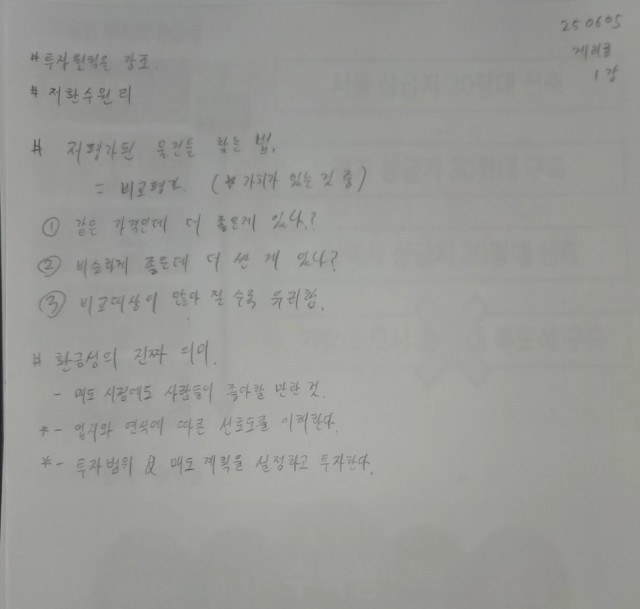 250605
게리롱
1강
# 투자원칙을 강조.
# 저환수원리
# 저평가된 물건을 찾는 법.
= 비교평가. (# 가치가 있는 것 중)
① 같은 가격인데 더 좋은게 있나?
② 비슷하게 좋은데 더 싼 게 있나?
③ 비교대상이 많아 질 수록 유리함.
# 환금성의 진짜 의미.
- 매도 시점에도 사람들이 좋아할 만한 것.
*- 입지와 연식에 따른 선호도를 이해한다.
*- 투자범위 및 매도 계획을 설정하고 투자한다.